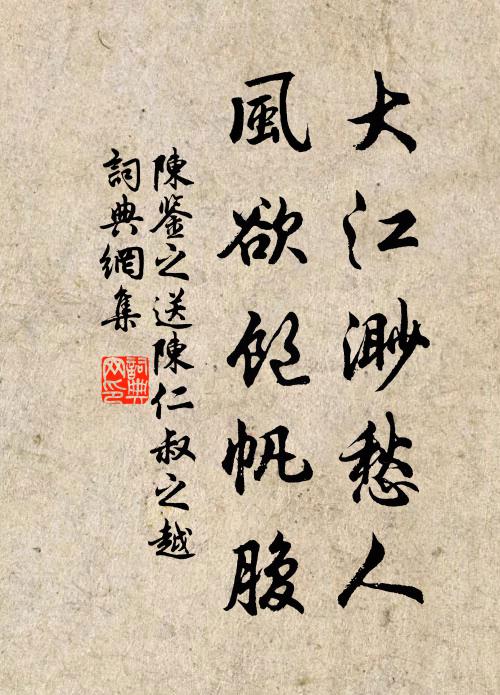 大江渺愁人
風欲飽帆腹
陳鉴之送陳仁叔之越
詞典網集
詞典
网印